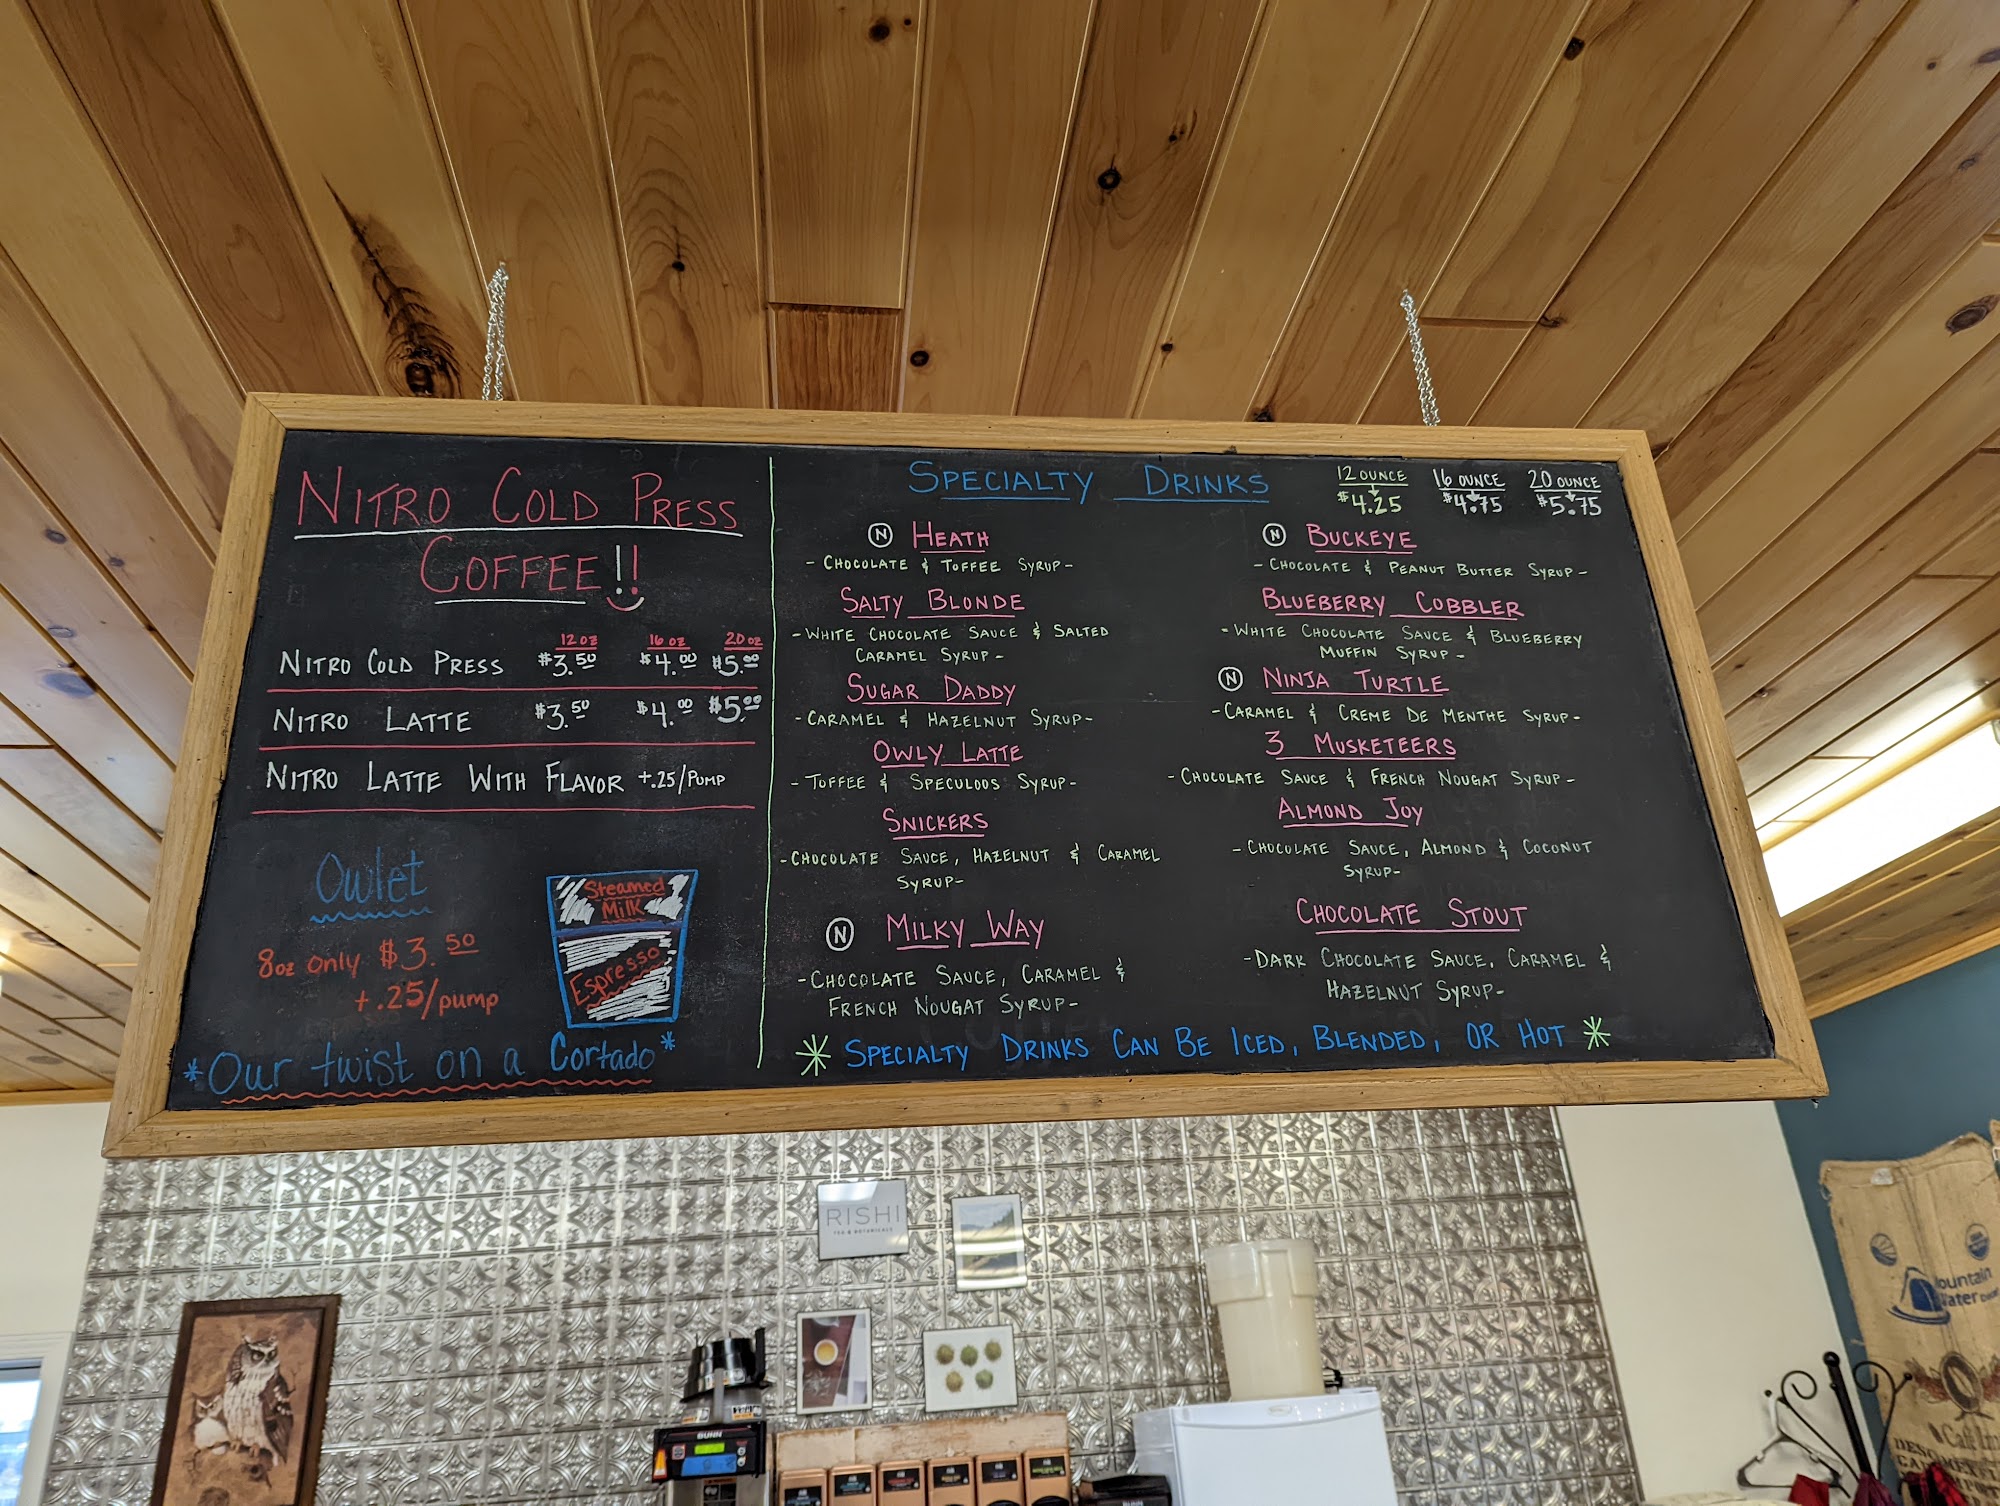 NITRO COLD PRESS
COFFEE!!
12 oz 16 oz 20 oz
NITRO COLD PRESS $3.50 $4.00 $5.00
NITRO LATTE $3.50 $4.00 $5.00
NITRO LATTE WITH FLAVOR +.25/PUMP
Owlet
8oz only $3.50
+.25/pump
Steamed
Milk
Espresso
*Our twist on a Cortado*
SPECIALTY DRINKS
12 OUNCE 16 OUNCE 20 OUNCE
$4.25 $4.75 $5.75
N HEATH
- CHOCOLATE & TOFFEE SYRUP -
SALTY BLONDE
- WHITE CHOCOLATE SAUCE & SALTED
CARAMEL SYRUP -
SUGAR DADDY
- CARAMEL & HAZELNUT SYRUP -
OWLY LATTE
- TOFFEE & SPECULOOS SYRUP -
SNICKERS
- CHOCOLATE SAUCE, HAZELNUT & CARAMEL
SYRUP -
N MILKY WAY
- CHOCOLATE SAUCE, CARAMEL &
FRENCH NOUGAT SYRUP -
N BUCKEYE
- CHOCOLATE & PEANUT BUTTER SYRUP -
BLUEBERRY COBBLER
- WHITE CHOCOLATE SAUCE & BLUEBERRY
MUFFIN SYRUP -
N NINJA TURTLE
- CARAMEL & CREME DE MENTHE SYRUP -
3 MUSKETEERS
- CHOCOLATE SAUCE & FRENCH NOUGAT SYRUP -
ALMOND JOY
- CHOCOLATE SAUCE, ALMOND & COCONUT
SYRUP -
CHOCOLATE STOUT
- DARK CHOCOLATE SAUCE, CARAMEL &
HAZELNUT SYRUP -
* SPECIALTY DRINKS CAN BE ICED, BLENDED, OR HOT *
RISHI
TEA & BOTANICALS
BUNN